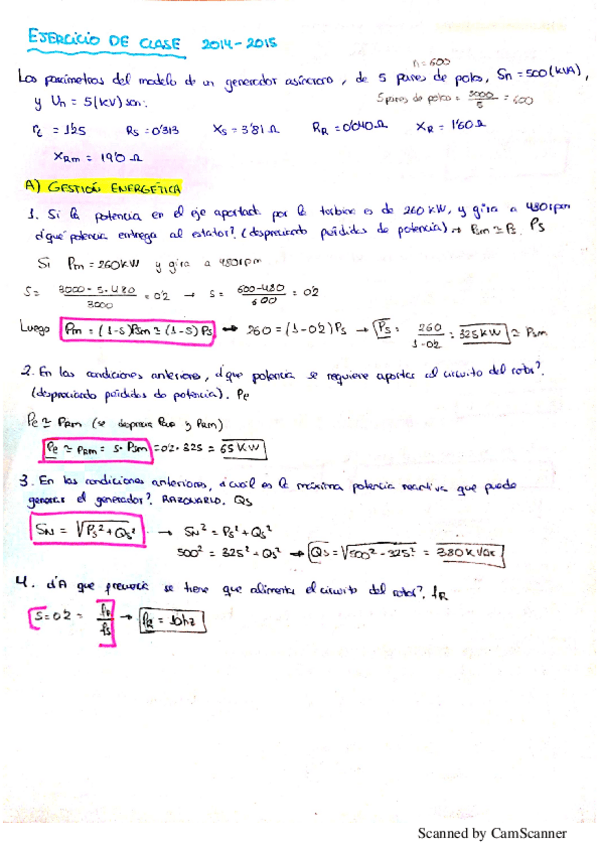 EJERCICIO DE CLASE 2014-2015
n=600
Los parámetros del modelo de un generador asíncrono, de 5 pares de polos, Sn = 500 (kVA),
y Un = 5 (kV) son:
5 pares de polos = 3000/5 = 600
rt = 1'25 Rs = 0'313 Xs = 3'81 Ω RR = 0'040 Ω XR = 1'60 Ω
XRm = 19'0 Ω
A) GESTIÓN ENERGÉTICA
1. Si la potencia en el eje aportada por la turbina es de 260 kW, y gira a 480 rpm
¿qué potencia entrega al estator? (despreciando pérdidas de potencia) → Psm ≃ Ps. Ps
Si Pm = 260 kW y gira a 480 rpm
S = (3000 - 5·480)/3000 = 0'2 → S = (600-480)/600 = 0'2
Luego Pm = (1-S)Psm ≃ (1-S)Ps → 260 = (1-0'2)Ps → Ps = 260/(1-0'2) = 325 kW ≃ Psm
2. En las condiciones anteriores, ¿qué potencia se requiere aportar al circuito del rotor?
(despreciando pérdidas de potencia). Pe
Pe ≃ PRm (se desprecia y )
Pe ≃ PRm = S · Psm = 0'2 · 325 = 65 kW
3. En las condiciones anteriores, ¿cuál es la máxima potencia reactiva que puede
generar el generador? RAZONARLO. Qs
SN = √Ps² + Qs² → SN² = Ps² + Qs²
500² = 325² + Qs² → Qs = √500² - 325² = 380 kVAr
4. ¿A que frecuencia se tiene que alimentar el circuito del rotor? fR
S = 0'2 = fR/fs → fR = 10 hz
Scanned by CamScanner